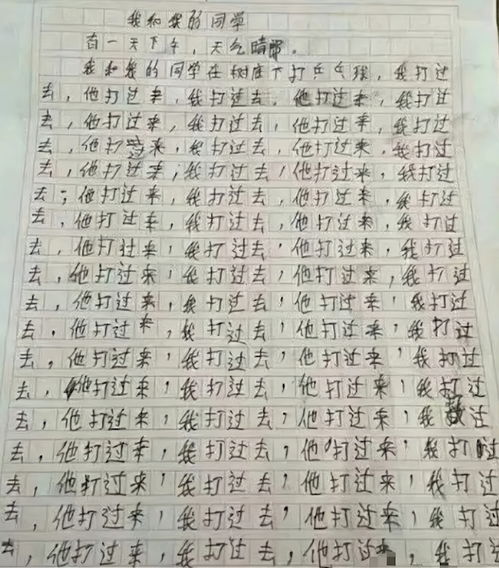 我和我的同学
有一天下午，天气晴。
我和我的同学在树底下打乒乓球，我打过
去，他打过来，我打过去，他打过来，我打过
去，他打过来，我打过去，他打过来，我打过
去，他打过来，我打过去，他打过来，我打过
去，他打过来；我打过去，他打过来，我打过
去；他打过来，我打过去，他打过来，我打过
去，他打过来，我打过去，他打过来，我打过
去，他打过来，我打过去，他打过来，我打过
去，他打过来，我打过去，他打过来，我打过
去，他打过来，我打过去，他打过来，我打过
去，他打过来，我打过去，他打过来，我打过
去，他打过来，我打过去，他打过来，我打过
去，他打过来，我打过去，他打过来，我打过
去，他打过来，我打过去，他打过来，我过
去，他打过来，我打过去，他打过来，我打过
去，他打过来，我打过去，他打过来，我打过
去，他打过来，我打过去，他打过来，我打过
去，他打过来，我打过去，他打过来，我打过